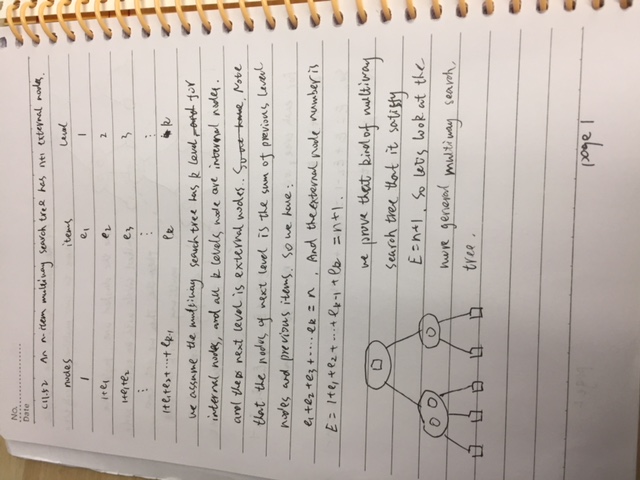 No.
Date
C11.52 An n-item multiway search tree has n+1 external nodes.
nodes items Level
1 e1 1
1+e1 e2 2
1+e1+e2 e3 3
⋮ ⋮ ⋮
1+e1+e2+⋯+ek-1 ek k
we assume the multiway search tree has k level for
internal nodes, and all k levels node are internal nodes.
and the next level is external nodes. Note
that the nodes of next level is the sum of previous level
nodes and previous items. So we have:
e1+e2+e3+⋯ek = n. And the external node number is
E = 1+e1+e2+⋯+ek-1+ek = n+1.
we prove that kind of multiway
search tree that it satisfy
E=n+1. So let's look at the
more general multiway search
tree.
page 1